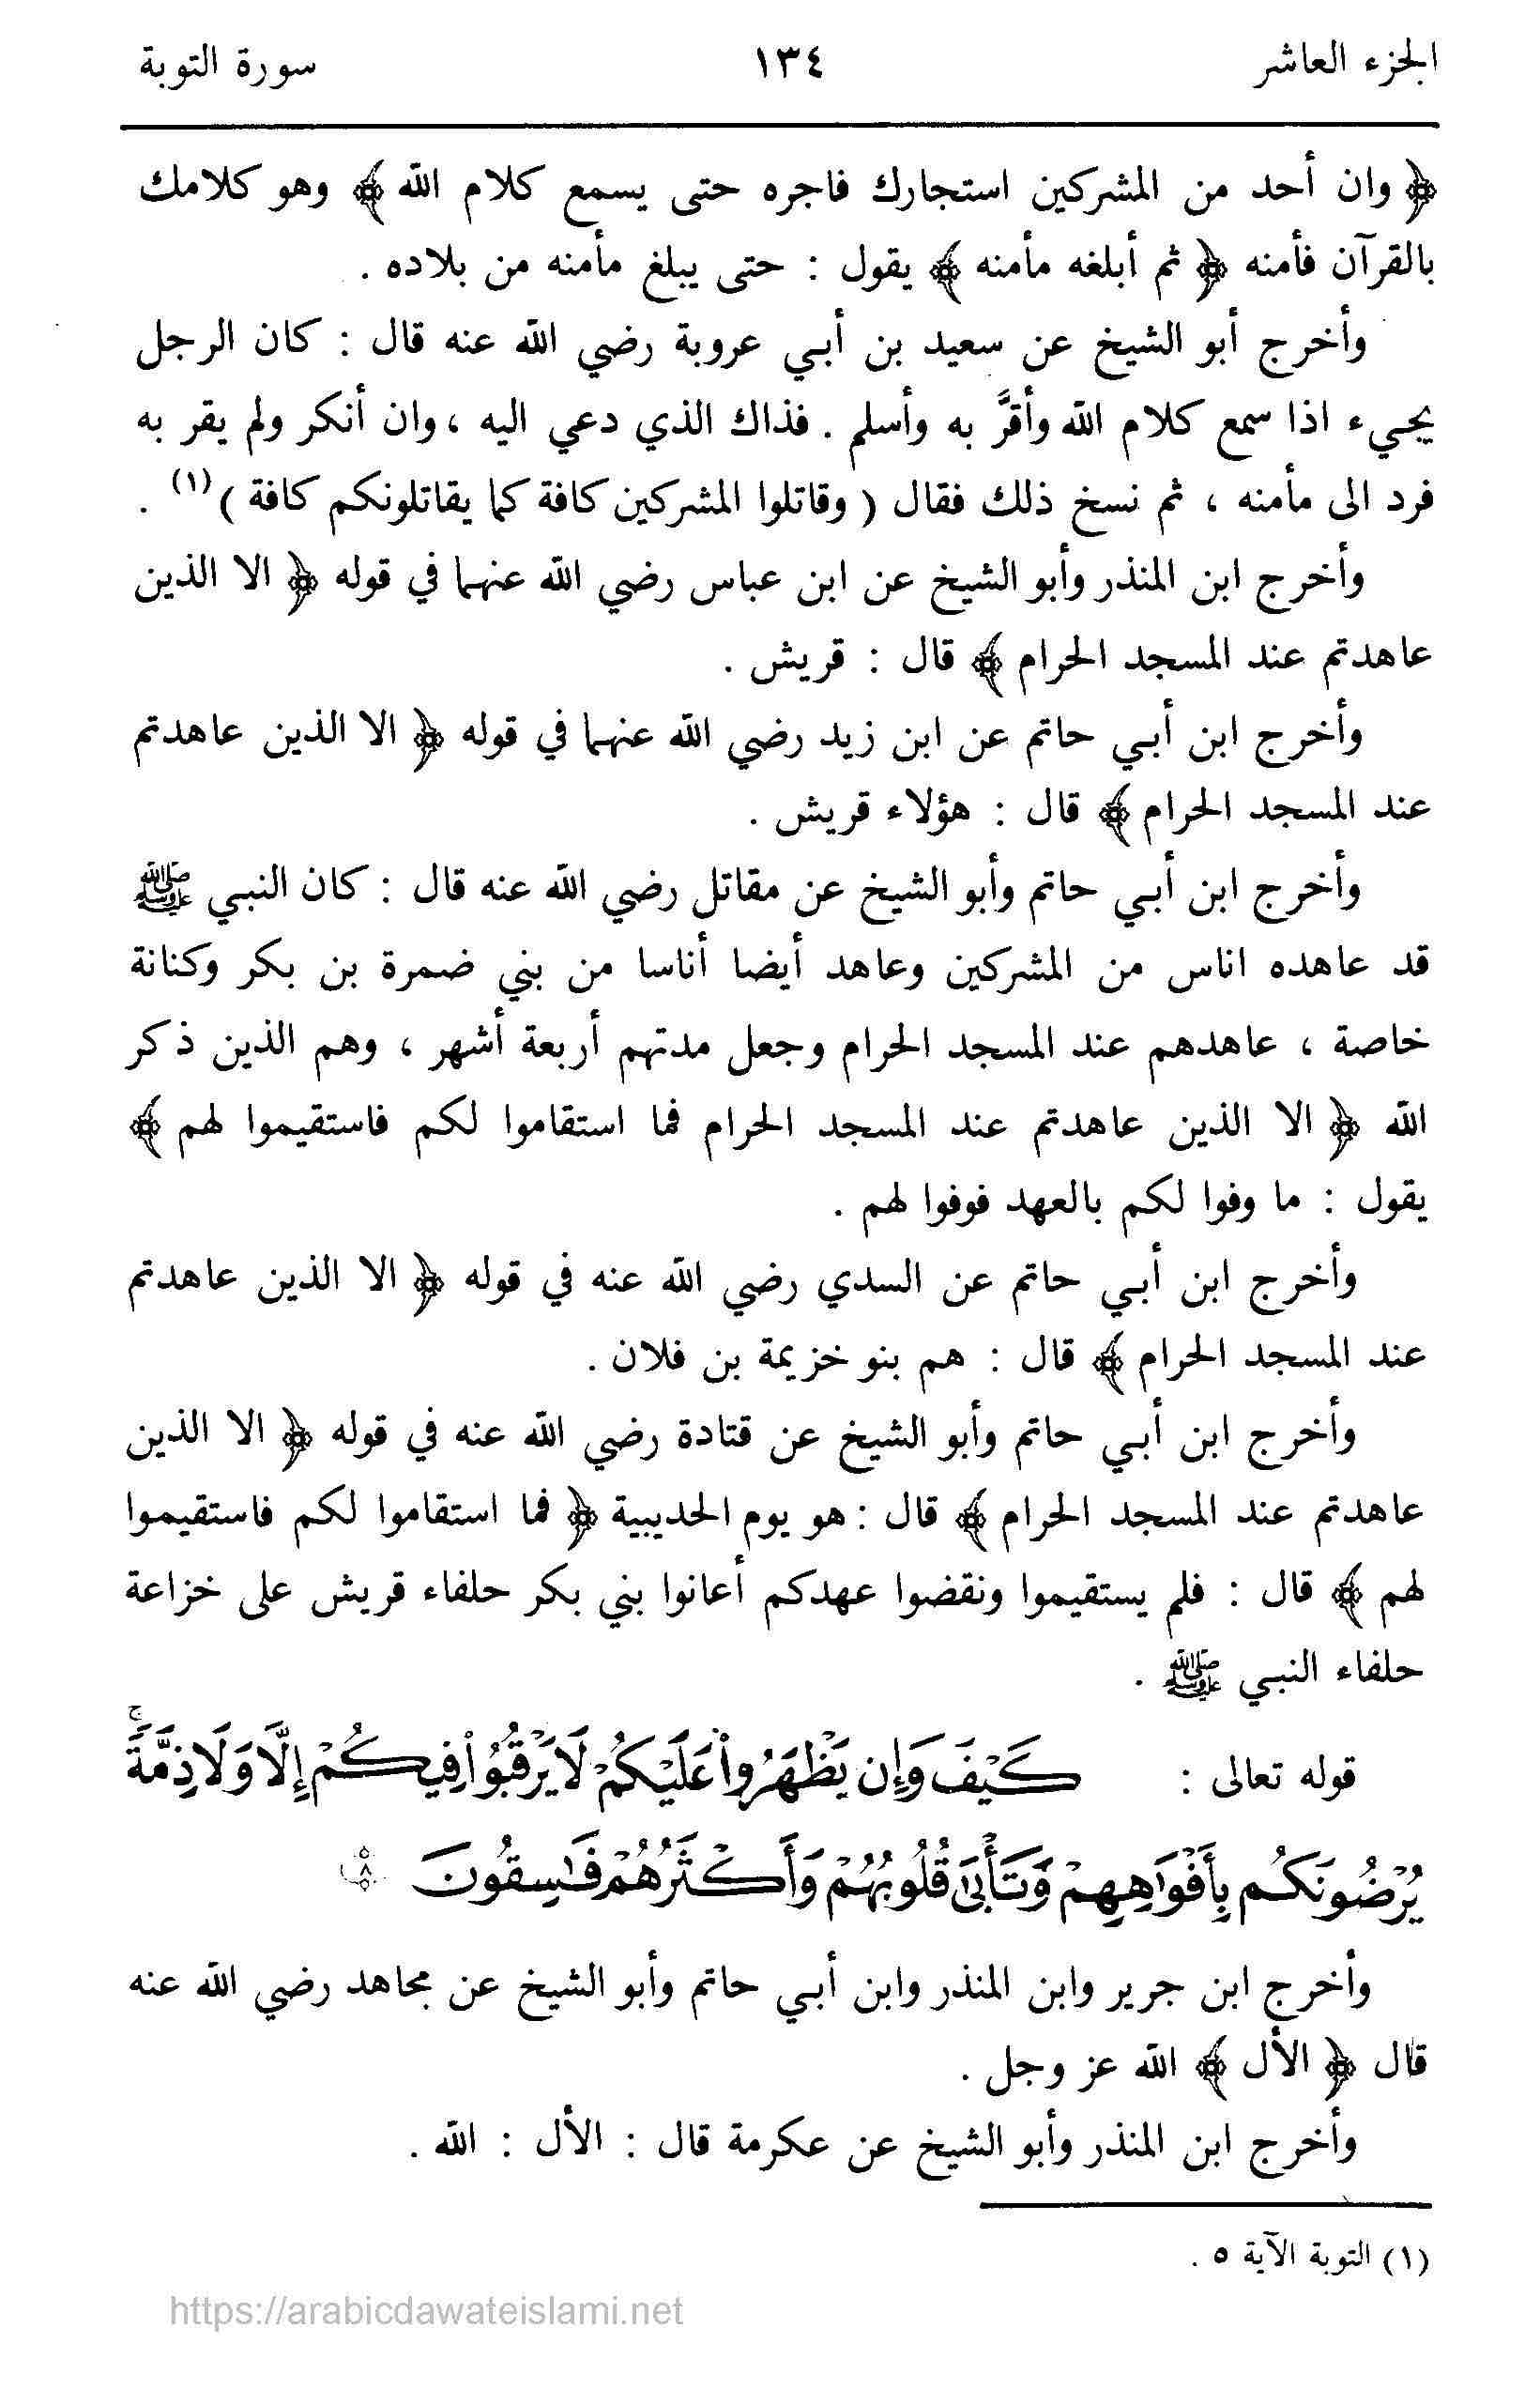 الجزء العاشر ١٣٤ سورة التوبة
﴿ وان أحد من المشركين استجارك فاجره حتى يسمع كلام الله ﴾ وهو كلامك
بالقرآن فأمنه ﴿ ثم أبلغه مأمنه ﴾ يقول : حتى يبلغ مأمنه من بلاده .
وأخرج أبو الشيخ عن سعيد بن أبي عروبة رضي الله عنه قال : كان الرجل
يجيء اذا سمع كلام الله وأقرَّ به وأسلم . فذاك الذي دعي اليه ، وان أنكر ولم يقر به
فرد الى مأمنه ، ثم نسخ ذلك فقال ( وقاتلوا المشركين كافة كما يقاتلونكم كافة ) (١) .
وأخرج ابن المنذر وأبو الشيخ عن ابن عباس رضي الله عنهما في قوله ﴿ الا الذين
عاهدتم عند المسجد الحرام ﴾ قال : قريش .
وأخرج ابن أبي حاتم عن ابن زيد رضي الله عنهما في قوله ﴿ الا الذين عاهدتم
عند المسجد الحرام ﴾ قال : هؤلاء قريش .
وأخرج ابن أبي حاتم وأبو الشيخ عن مقاتل رضي الله عنه قال : كان النبي ﷺ
قد عاهده اناس من المشركين وعاهد أيضا أناسا من بني ضمرة بن بكر وكنانة
خاصة ، عاهدهم عند المسجد الحرام وجعل مدتهم أربعة أشهر ، وهم الذين ذكر
الله ﴿ الا الذين عاهدتم عند المسجد الحرام فما استقاموا لكم فاستقيموا لهم ﴾
يقول : ما وفوا لكم بالعهد فوفوا لهم .
وأخرج ابن أبي حاتم عن السدي رضي الله عنه في قوله ﴿ الا الذين عاهدتم
عند المسجد الحرام ﴾ قال : هم بنو خزيمة بن فلان .
وأخرج ابن أبي حاتم وأبو الشيخ عن قتادة رضي الله عنه في قوله ﴿ الا الذين
عاهدتم عند المسجد الحرام ﴾ قال : هو يوم الحديبية ﴿ فما استقاموا لكم فاستقيموا
لهم ﴾ قال : فلم يستقيموا ونقضوا عهدكم أعانوا بني بكر حلفاء قريش على خزاعة
حلفاء النبي ﷺ .
قوله تعالى : كَيْفَ وَإِن يَظْهَرُوا۟ عَلَيْكُمْ لَا يَرْقُبُوا۟ فِيكُمْ إِلًّا وَلَا ذِمَّةً ۚ
يُرْضُونَكُم بِأَفْوَٰهِهِمْ وَتَأْبَىٰ قُلُوبُهُمْ وَأَكْثَرُهُمْ فَٰسِقُونَ ٨
وأخرج ابن جرير وابن المنذر وابن أبي حاتم وأبو الشيخ عن مجاهد رضي الله عنه
قال ﴿ الأل ﴾ الله عز وجل .
وأخرج ابن المنذر وأبو الشيخ عن عكرمة قال : الأل : الله .
(١) التوبة الآية ٥ .
https://arabicdawateislami.net